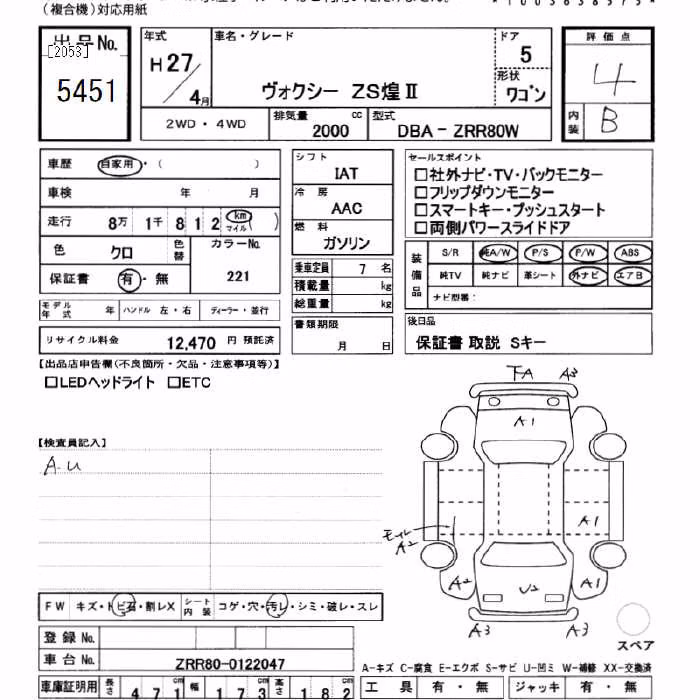 (複合機)対応用紙
*1003638575*
出品No.
[2053]
5451
年式
H27/4月
車名・グレード
ヴォクシー ZS煌Ⅱ
ドア
5
形状
ワゴン
評価点
4
内装
B
2WD・4WD
排気量
2000
cc
型式
DBA-ZRR80W
車歴
自家用・( )
車検
年 月
走行
8万 1千 8 1 2 km マイル ( )
色
クロ
色替
カラーNo.
221
保証書
有・無
モデル年式
年
ハンドル 左・右
ディーラー・並行
リサイクル料金
12,470 円 預託済
シフト
IAT
冷房
AAC
燃料
ガソリン
乗車定員 7 名
積載量 kg
総重量 kg
書類期限
月 日
セールスポイント
□社外ナビ・TV・バックモニター
□フリップダウンモニター
□スマートキー・プッシュスタート
□両側パワースライドドア
装備品
S/R 純A/W P/S P/W ABS
純TV 純ナビ 革シート 外ナビ エアB
ナビ型番:
後日品
保証書 取説 Sキー
【出品店申告欄(不良箇所・欠品・注意事項等)】
□LEDヘッドライト □ETC
【検査員記入】
A.u
FA A3
A1
A1
モール
A2
A2
U2
A1
A3
A3
スペア
FW キズ・トビ石・割レX
シート内装 コゲ・穴・汚レ・シミ・破レ・スレ
登録No.
車台No.
ZRR80-0122047
A-キズ C-腐食 E-エクボ S-サビ U-凹ミ W-補修 XX-交換済
車庫証明用
長さ 471 cm
幅 173 cm
高さ 182 cm
工具 有・無
ジャッキ 有・無